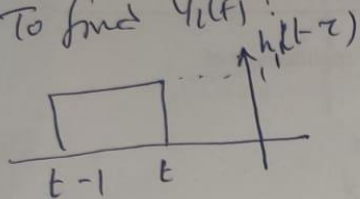 To find y₁(t) :
h₁(t-τ)
t-1 t